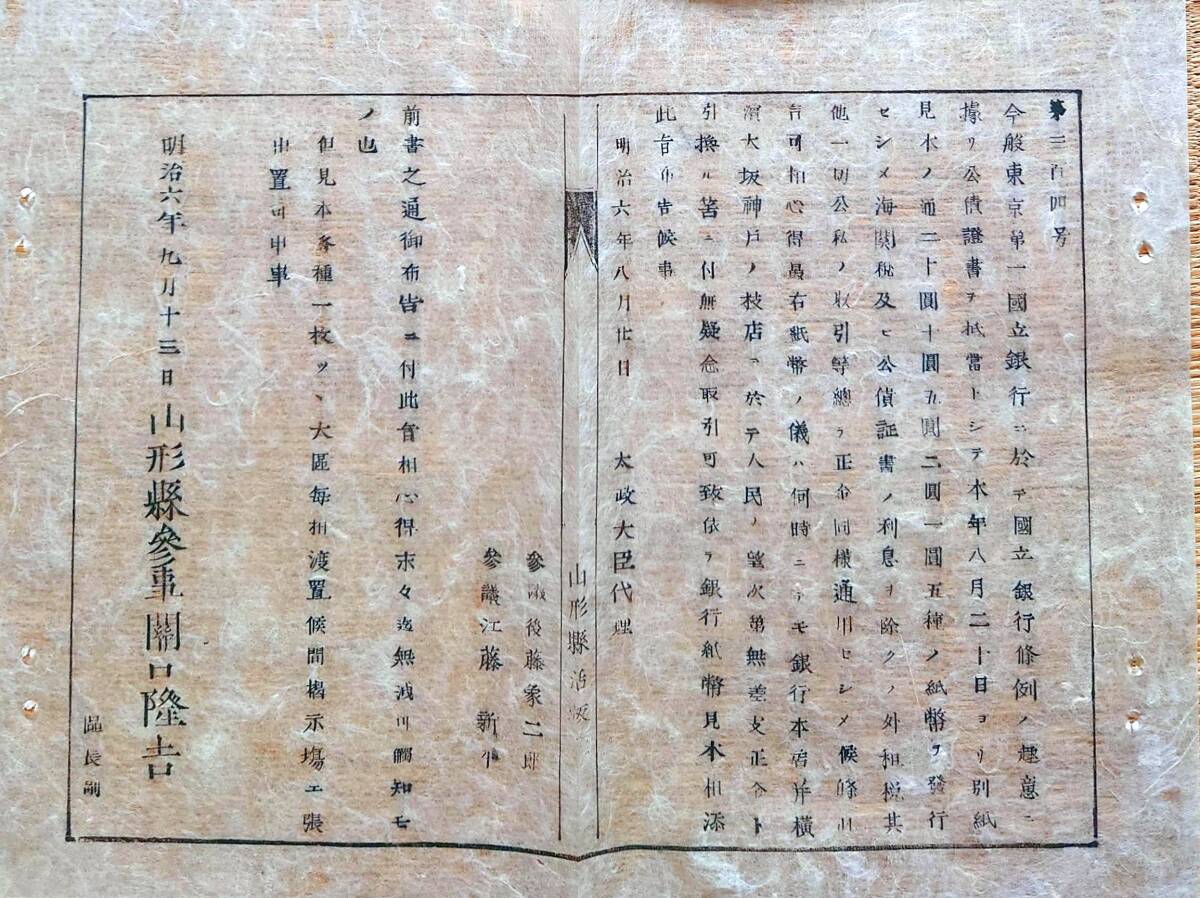 第三百四号
今般東京第一國立銀行ニ於テ國立銀行條例ノ趣意ニ
據リ公債證書ヲ抵當トシテ本年八月二十日ヨリ別紙
見本ノ通二十圓十圓五圓二圓一圓五種ノ紙幣ヲ發行
セシメ海關税及ヒ公債証書ノ利息ヲ除クノ外租税其
他一切公私ノ取引等總テ正金同樣通用セシメ候條此
旨可相心得最右紙幣ノ儀ハ何時ニテモ銀行本店并橫
濱大坂神戸ノ枝店ニ於テ人民ノ望次第無差支正金ト
引換ル筈ニ付無疑念取引可致依テ銀行紙幣見本相添
此旨布告候事
明治六年八月廿日 太政大臣代理
山形縣治版
參議後藤象二郎
參議江藤新平
前書之通御布告ニ付此旨相心得末々迄無洩可觸知モ
ノ也
但見本各種一枚ツヽ大區毎相渡置候間揭示塲エ張
出置可申事
明治六年九月十三日山形縣參事關口隆吉
區長副